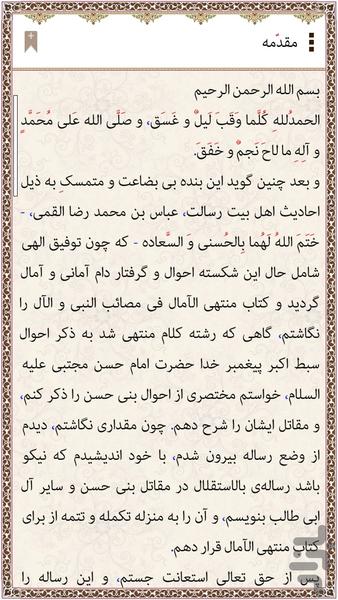 مقدّمه
بسم الله الرحمن الرحیم
الحمدُللهِ كُلَّما وَقَبَ لَيلٌ و غَسَق، و صَلَّى الله عَلى مُحَمَّدٍ
و آلِهِ ما لاحَ نَجمٌ و خَفَقَ.
و بعد چنین گوید این بنده بی بضاعت و متمسکِ به ذیل
احادیث اهل بیت رسالت، عباس بن محمد رضا القمی، -
خَتَمَ اللهُ لَهُما بِالحُسنی وَ السَّعاده - که چون توفیق الهی
شامل حال این شکسته احوال و گرفتار دام آمانی و آمال
گردید و کتاب منتهی الآمال فی مصائب النبی و الآل را
نگاشتم، گاهی که رشته کلام منتهی شد به ذکر احوال
سبط اکبر پیغمبر خدا حضرت امام حسن مجتبی علیه
السلام، خواستم مختصری از احوال بنی حسن را ذکر کنم،
و مقاتل ایشان را شرح دهم. چون مقداری نگاشتم، دیدم
از وضع رساله بیرون شدم، با خود اندیشیدم که نیکو
باشد رساله‌ی بالاستقلال در مقاتل بنی حسن و سایر آل
ابی طالب بنویسم، و آن را به منزله تکمله و تتمه از برای
کتاب منتهی الآمال قرار دهم.
پس از حق تعالی استعانت جستم، و این رساله را